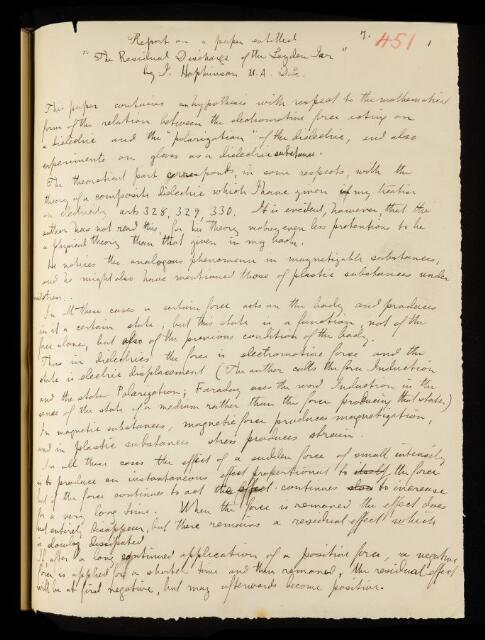 7.
451
1
Report on a paper entitled
"The Residual Discharge of the Leyden Jar"
by J. Hopkinson M.A. D.Sc.
This paper contains an hypothesis with respect to the mathematical
form of the relation between the electromotive force acting on
a dielectric and the "polarization" of the dielectric, and also
experiments on glass as a dielectric substance.
The theoretical part corresponds, in some respects, with the
theory of a composite dielectric which I have given in my treatise
on electricity arts 328, 329, 330. It is evident, however, that the
author has not read this, for his theory makes even less pretentions to be
a physical theory than that given in my book.
He notices the analogous phenomena in magnetizable substances,
and he might also have mentioned those of plastic substances under
stress.
In all these cases a certain force acts on the body and produces
in it a certain state, but this state is a function, not of the
force alone, but also of the previous condition of the body.
Thus in dielectrics the force is electromotive force and the
state is electric displacement (The author calls the force Induction
and the state Polarization; Faraday uses the word Induction in the
sense of the state of a medium rather than the force producing that state.)
In magnetic substances, magnetic force produces magnetization,
and in plastic substances stress produces strain.
In all these cases the effect of a sudden force of small intensity
is to produce an instantaneous effect proportional to itself, the force
but if the force continues to act the effect continues also to increase
for a very long time. When the force is removed the effect does
not entirely disappear, but there remains a residual effect which
is slowly dissipated.
If, after a long continued application of a positive force, a negative
force is applied for a shorter time and then removed, the residual effect
will be at first negative, but may afterwards become positive.